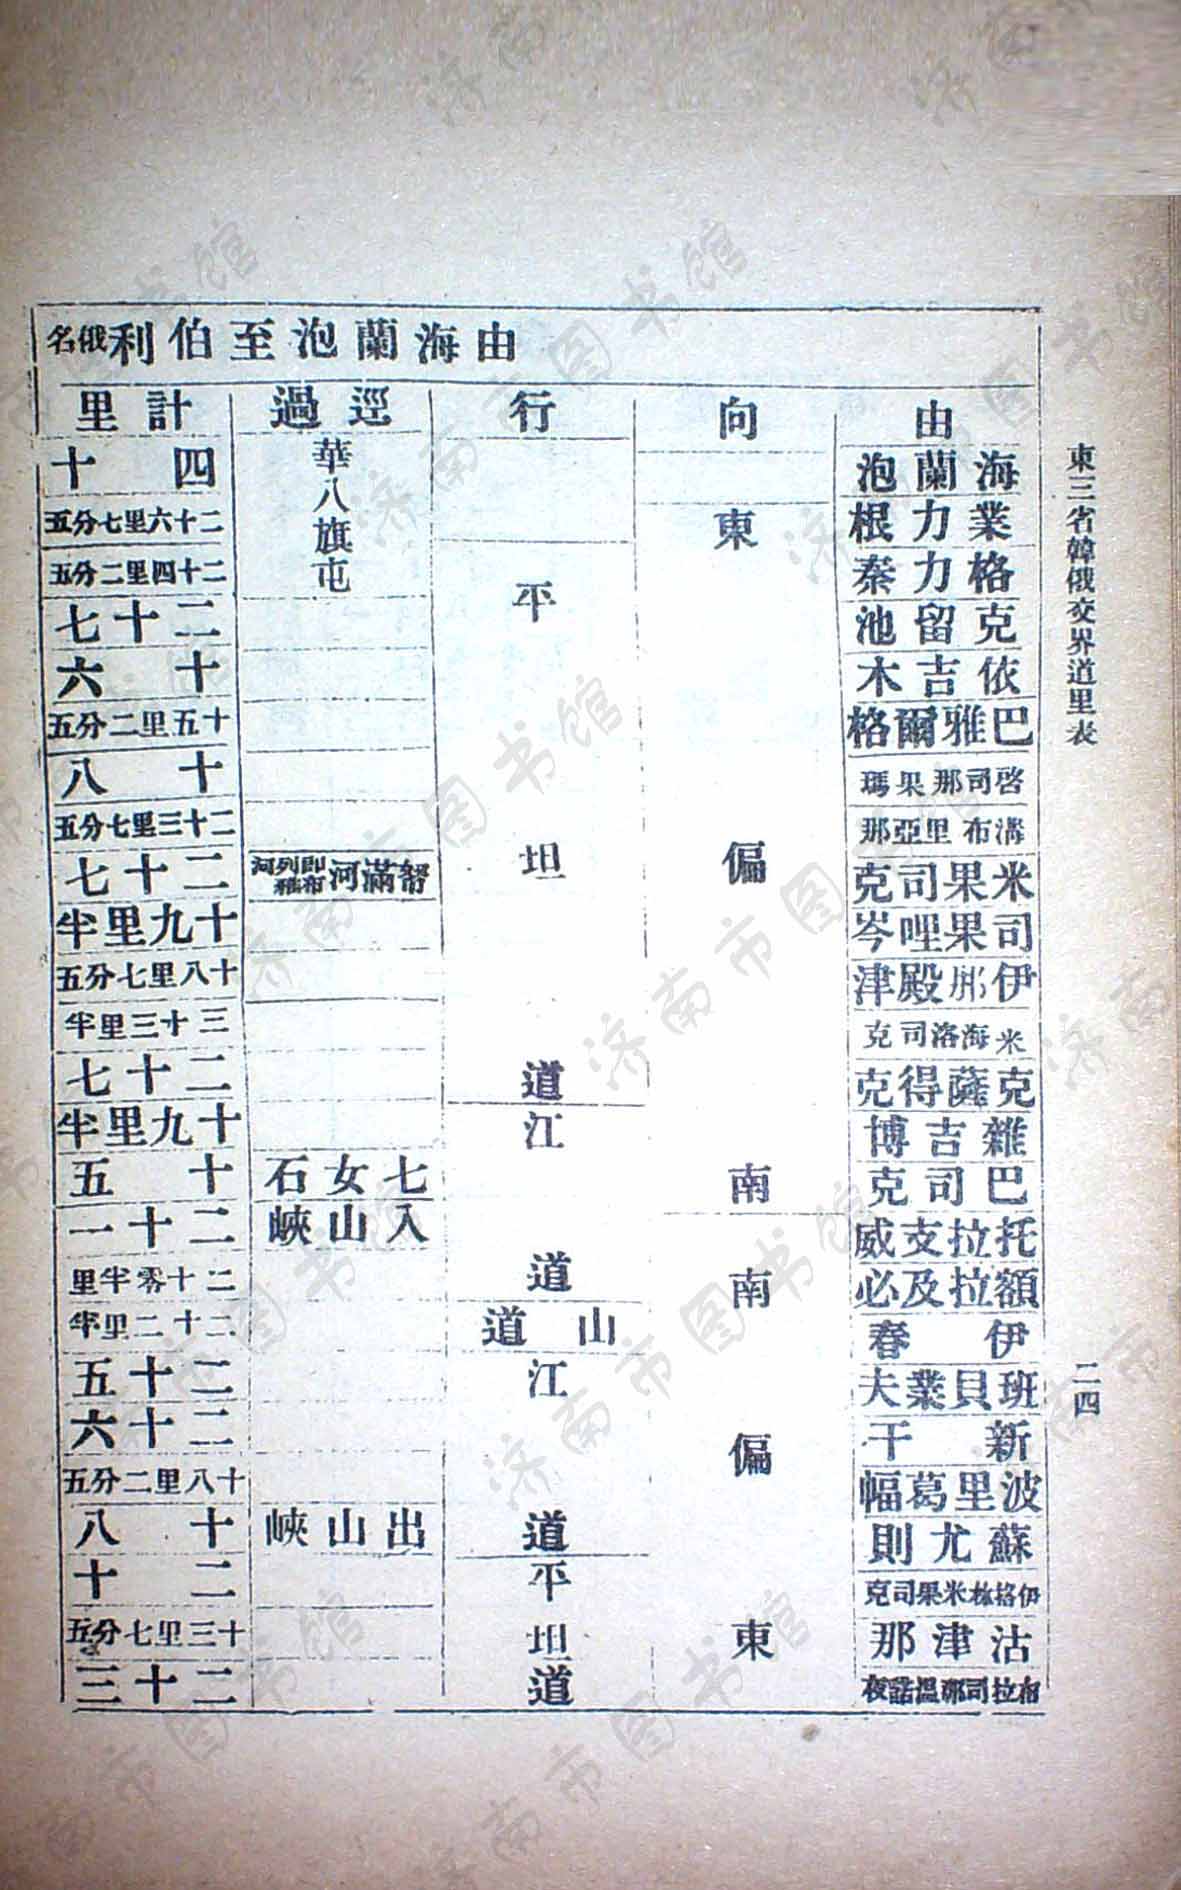 東三省韓俄交界道里表
二四
由海蘭泡至伯利俄名
由 向 行 逕過 計里
海蘭泡 四十
業力根 東 華八旗屯 二十六里七分五
格力秦 平 二十四里二分五
克留池 二十七
依吉木 十六
巴雅爾格 十五里二分五
啓司那果瑪 十八
溝布里亞那 二十三里七分五
米果司克 偏 坦 帑滿河即布列雅河 二十七
司果哩岑 十九里半
伊那殿津 十八里七分五
米海洛司克 三十三里半
克薩得克 道 二十七
雜吉博 江 十九里半
巴司克 南 七女石 十五
托拉支威 入山峽 二十一
額拉及必 南 道 二十零半里
伊春 山道 二十二里半
班貝業夫 江 二十五
新干 偏 二十六
波里葛幅 十八里二分五
蘇尤則 道 出山峽 十八
伊格林米果司克 平 二十
沽津那 東 坦 十三里七分五
布拉司那溫諾夜 道 二十三